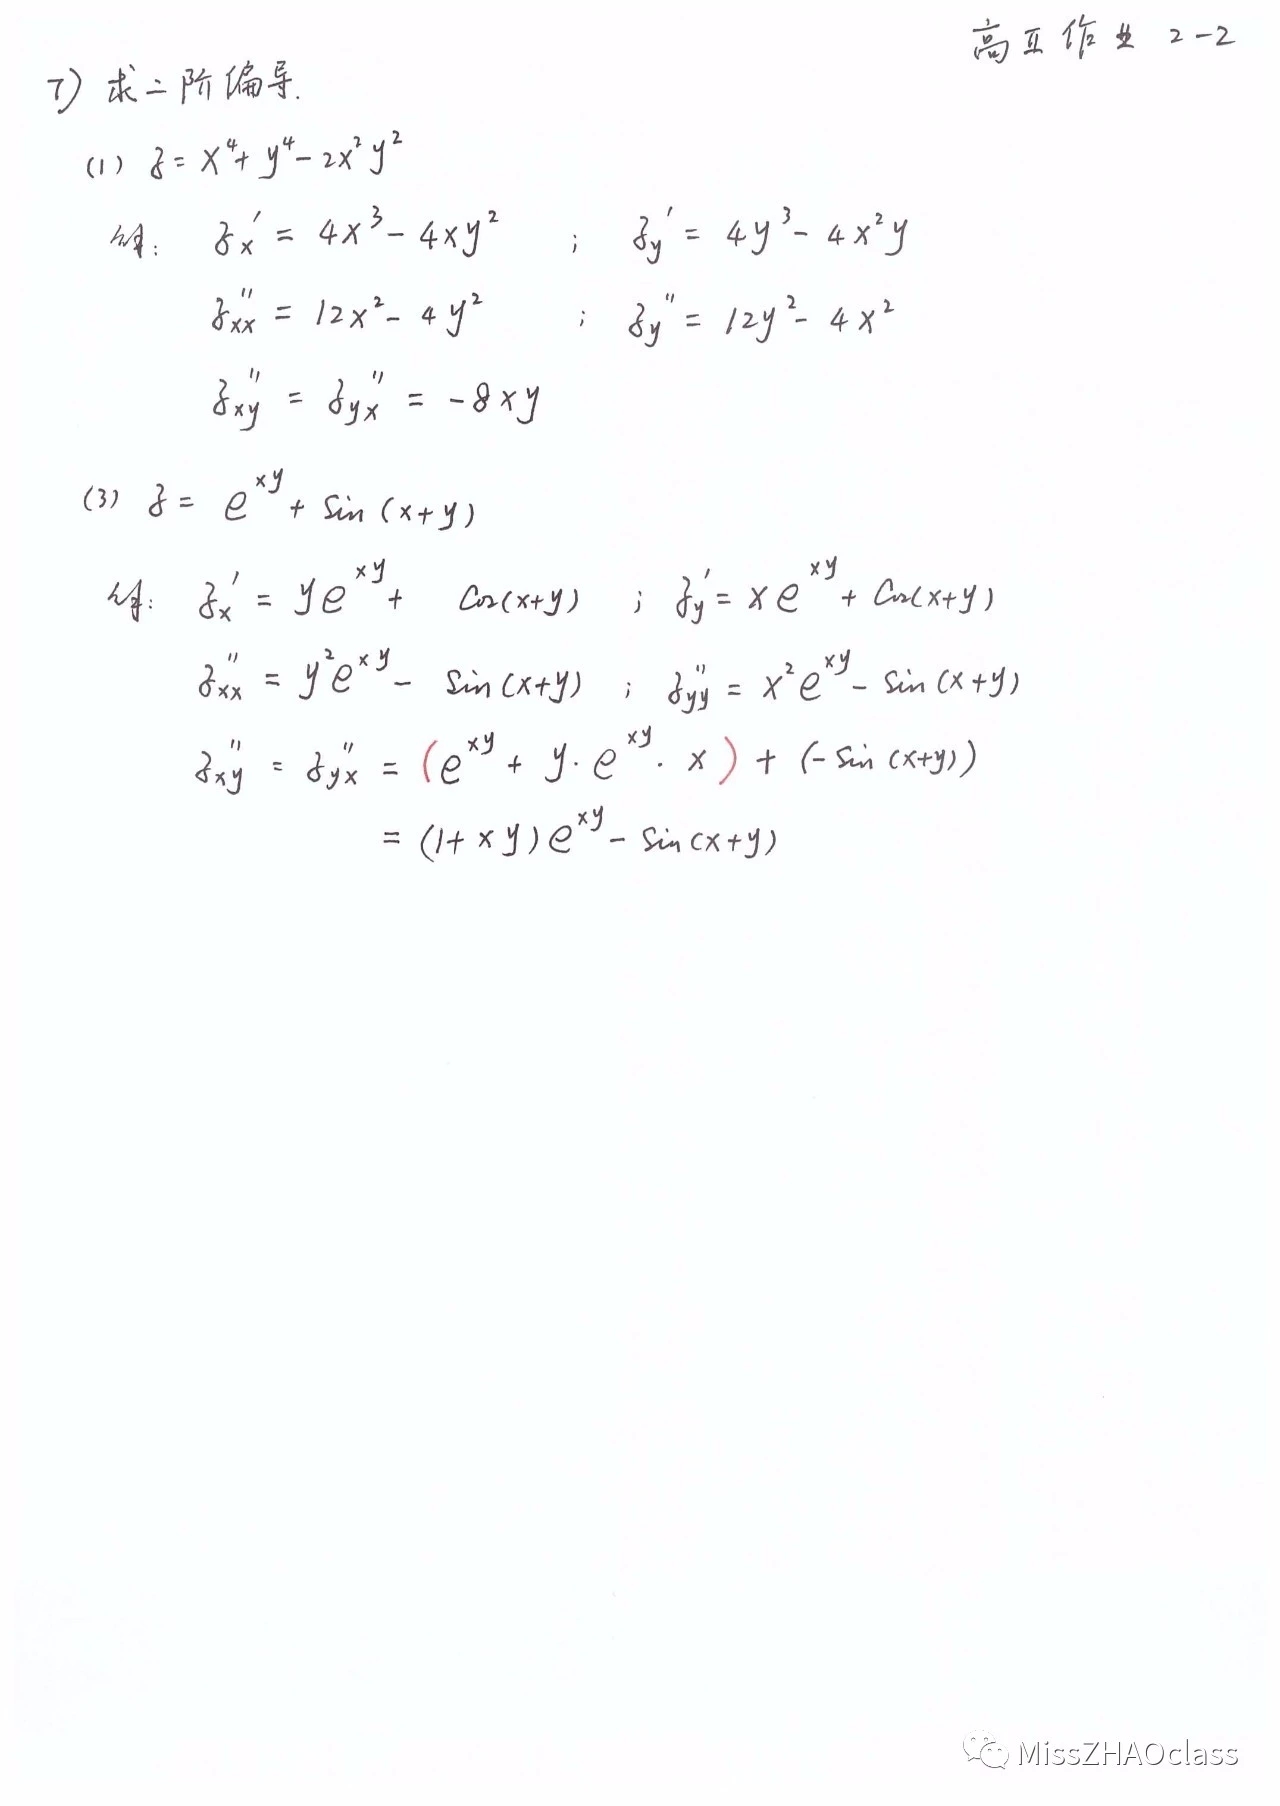 高工作业 2-2
7) 求二阶偏导.
(1) z = x⁴ + y⁴ - 2x²y²
解: zx' = 4x³ - 4xy² ; zy' = 4y³ - 4x²y
zxx'' = 12x² - 4y² ; zy'' = 12y² - 4x²
zxy'' = zyx'' = -8xy
(3) z = e^xy + Sin(x+y)
解: zx' = ye^xy + Cos(x+y) ; zy' = xe^xy + Cos(x+y)
zxx'' = y²e^xy - Sin(x+y) ; zyy'' = x²e^xy - Sin(x+y)
zxy'' = zyx'' = (e^xy + y·e^xy·x) + (-Sin(x+y))
= (1+xy)e^xy - Sin(x+y)
MissZHAOclass